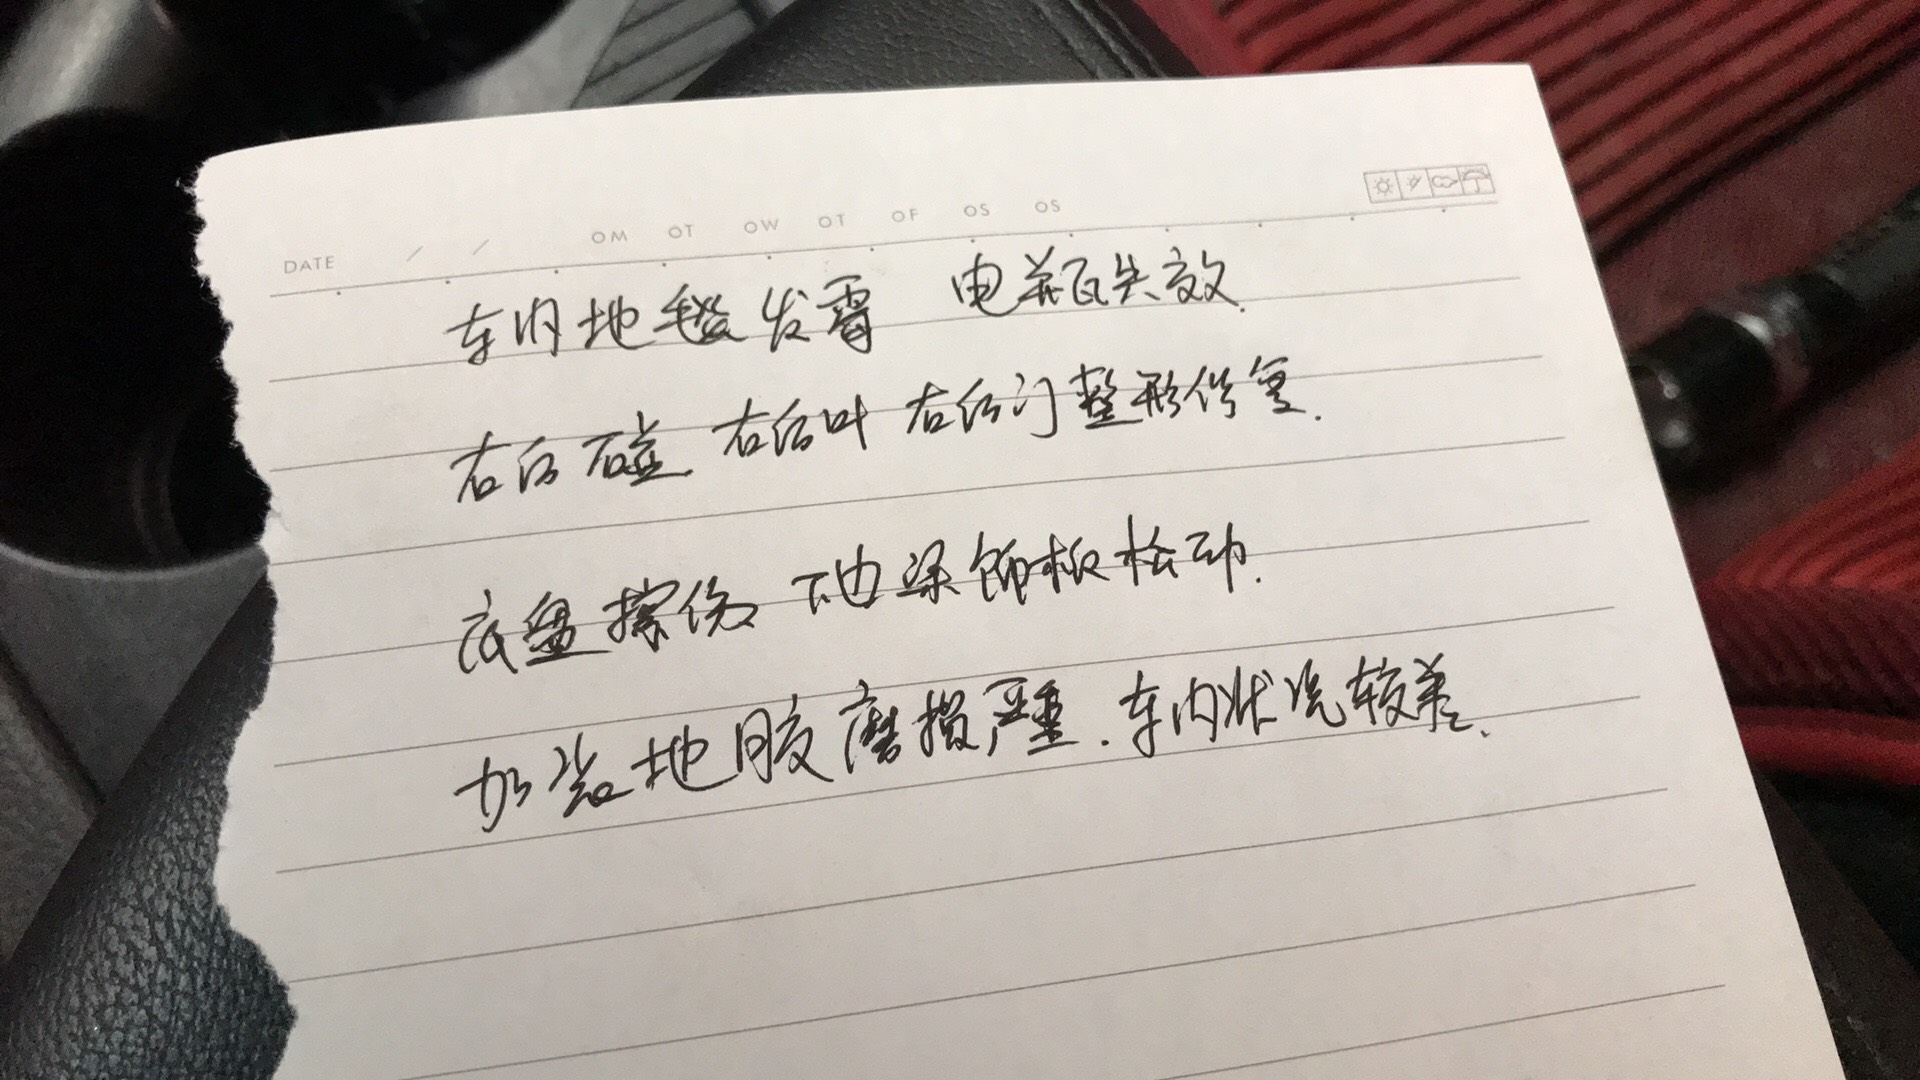 DATE / / OM OT OW OT OF OS OS
车内地毯发霉 电瓶失效.
右后碰 右后叶 右后门整形修复.
底盘擦伤 下边梁饰板松动.
加装地胶磨损严重.车内状况较差.